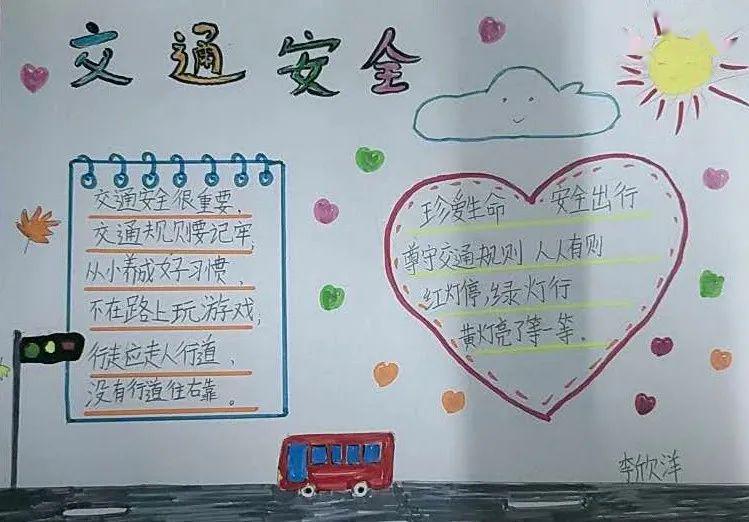 交通安全
交通安全很重要，
交通规则要记牢，
从小养成好习惯，
不在路上玩游戏，
行走应走人行道，
没有行道往右靠。
珍爱生命 安全出行
尊守交通规则 人人有则
红灯停，绿灯行
黄灯亮了等一等。
李欣洋